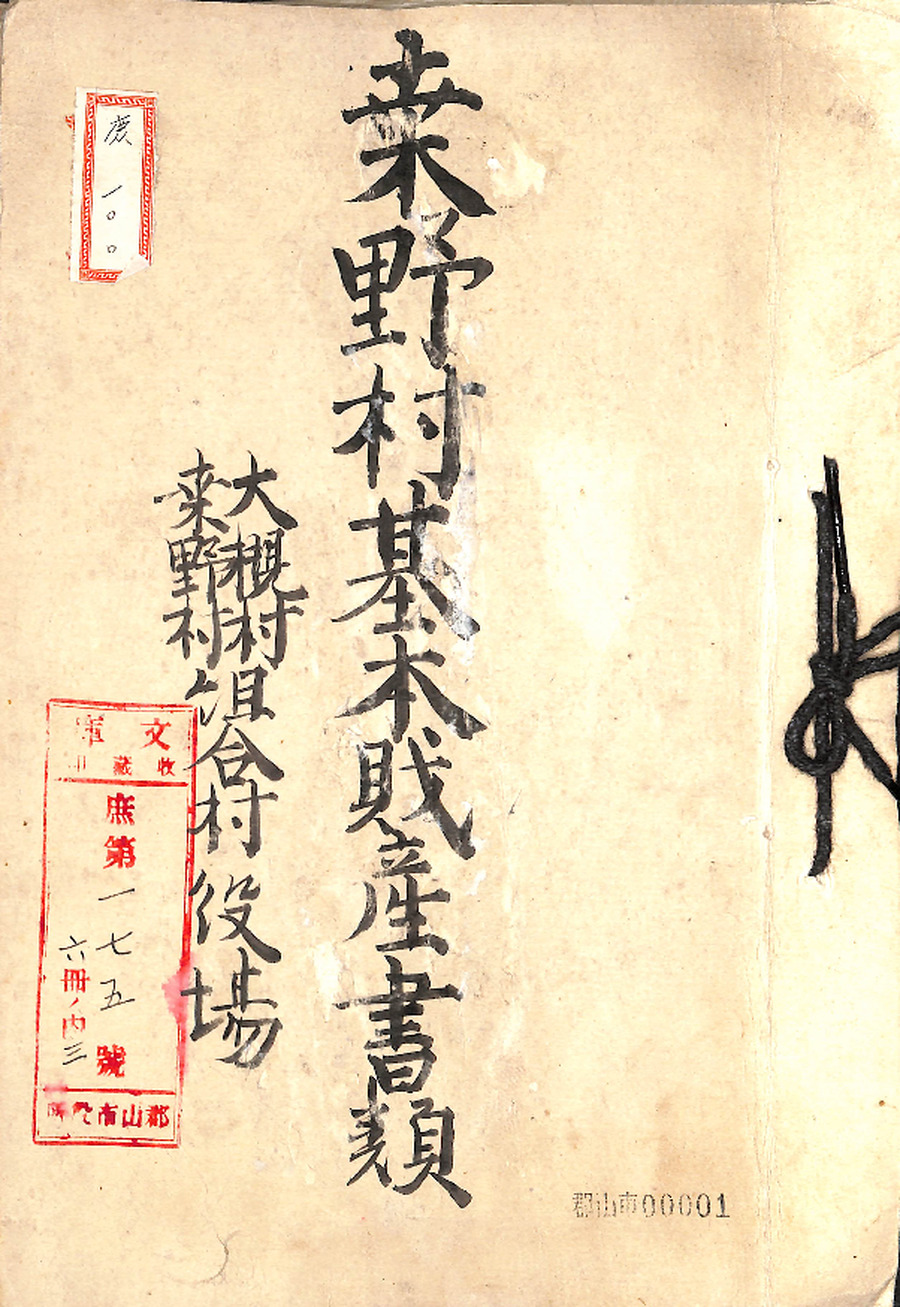 桒野村基本財産書類
大槻村
桒野村
組合村役場
庶一〇〇
文庫
收藏印
庶第一七五號
六冊ノ内三
郡山市役所
郡山市00001